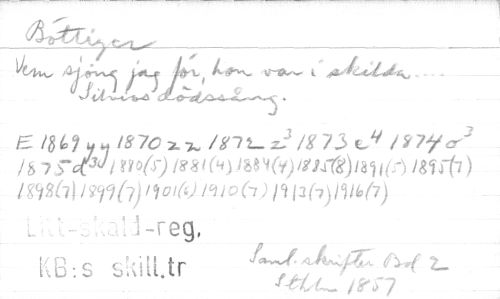 Böttiger
Vem sjöng jag för, hon var i skilda....
Silvios dödssång.
E 1869 yy 1870 zz 1872 z³ 1873 e⁴ 1874 o³
1875 d³ 1880(5) 1881(4) 1884(4) 1885(8) 1891(5) 1895(7)
1898(7) 1899(7) 1901(6) 1910(7) 1913(7) 1916(7)
Litt-skald-reg.
KB:s skill.tr
Saml. skrifter Bd 2
Sthlm 1857